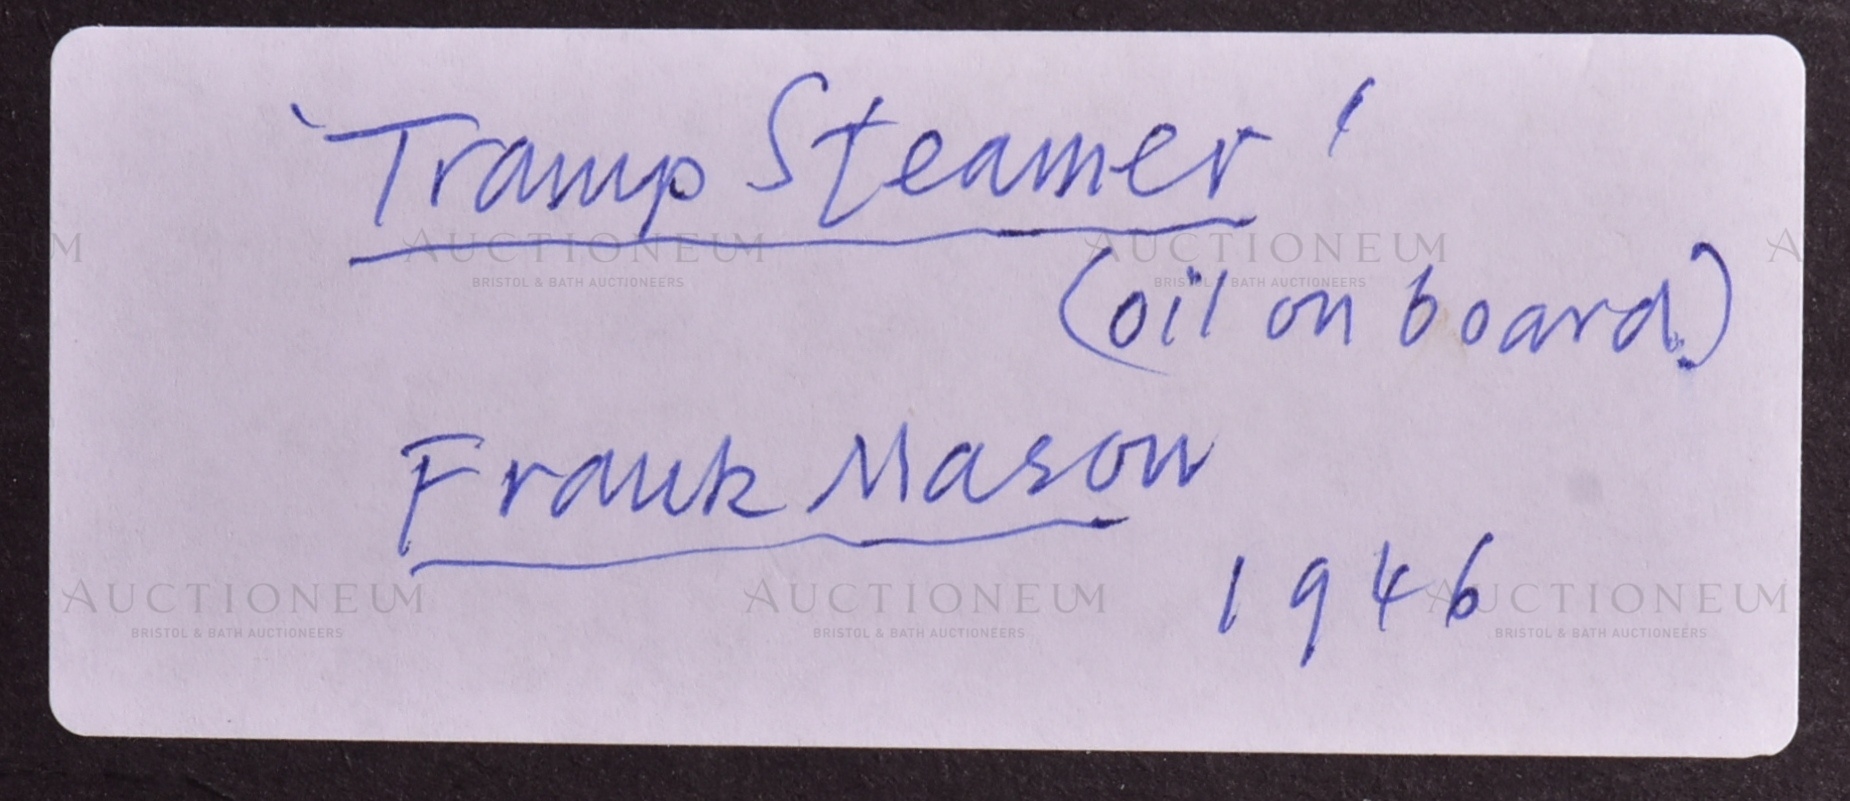 'Tramp Steamer'
(oil on board.)
Frank Mason
1946
M AUCTIONEUM AUCTIONEUM A
BRISTOL & BATH AUCTIONEERS BRISTOL & BATH AUCTIONEERS
AUCTIONEUM AUCTIONEUM AUCTIONEUM
BRISTOL & BATH AUCTIONEERS BRISTOL & BATH AUCTIONEERS BRISTOL & BATH AUCTIONEERS